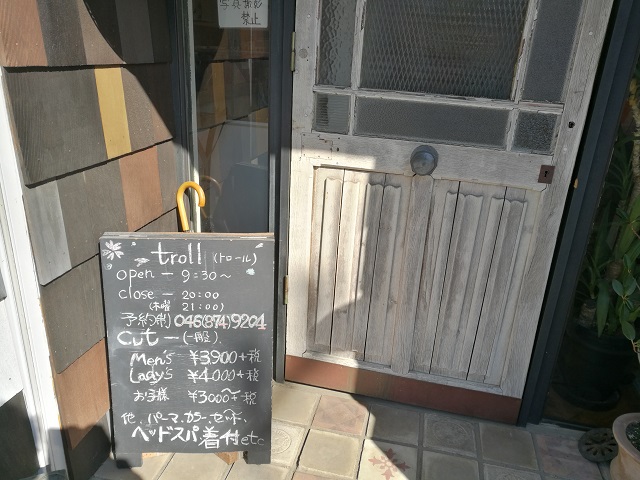 写真撮影
禁止
troll (トロール)
open — 9:30〜
close — 20:00
(木曜 21:00)
予約制 046(874)9204
cut — (一般)
Men's ¥3900+税
Lady's ¥4.000+税
お子様 ¥3000+税
他、パーマ、カラー、セット、
ヘッドスパ 着付 etc